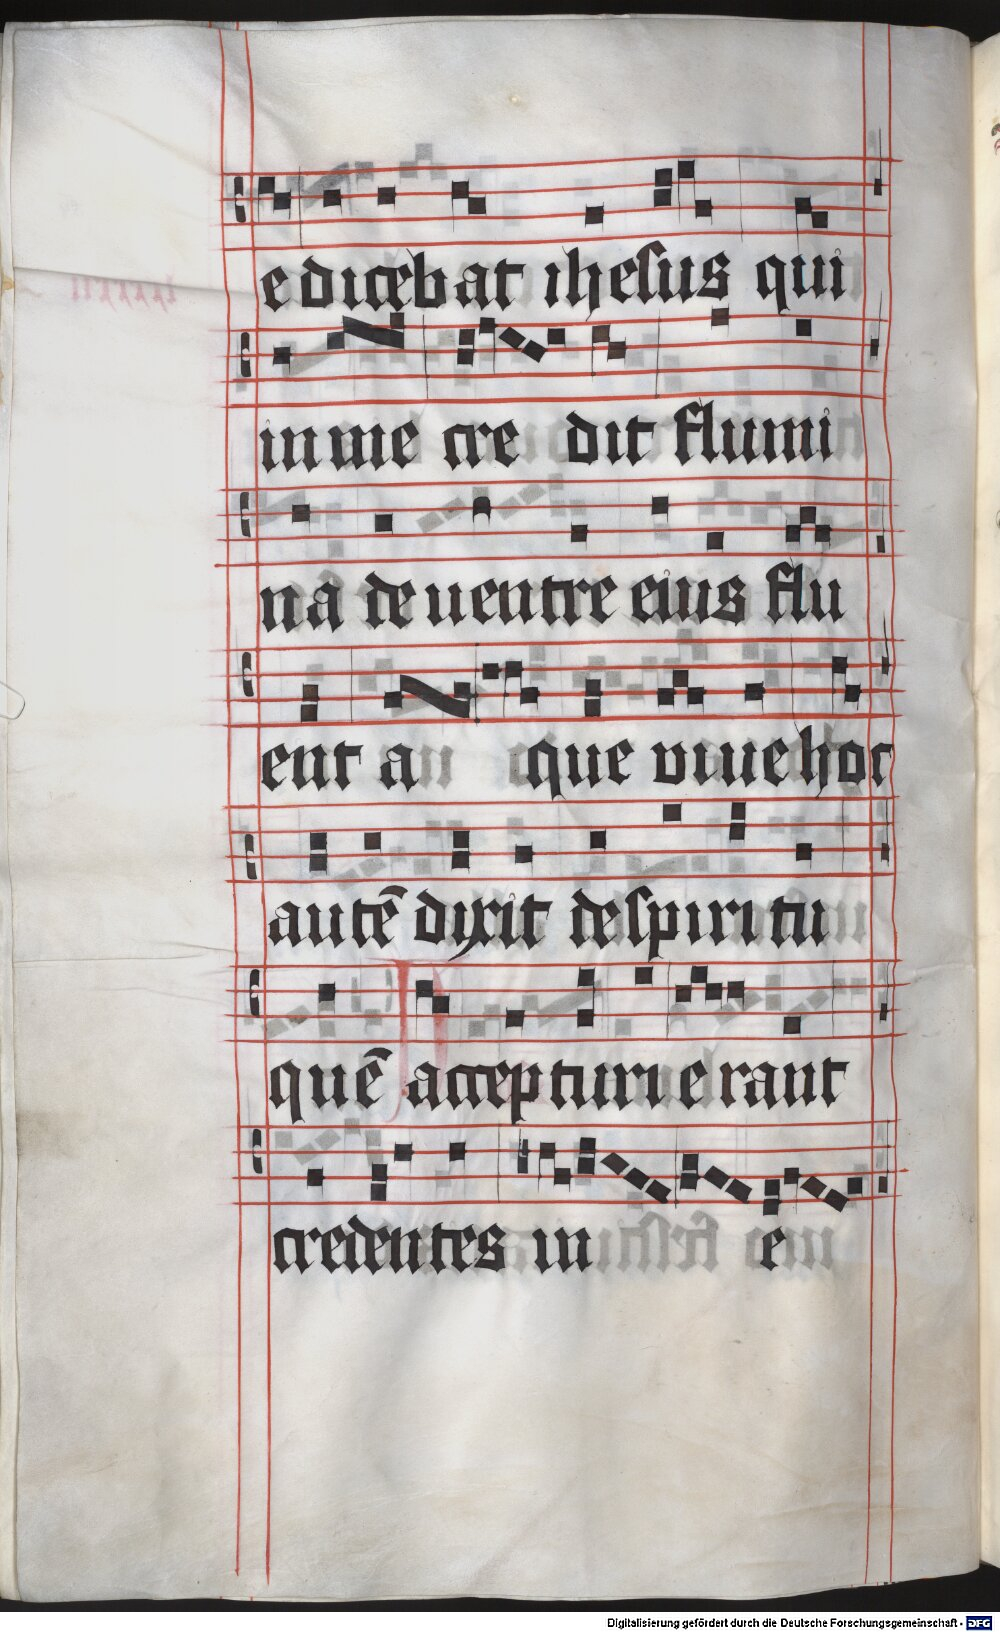 e dicebat ihesus qui
in me cre dit flumi
na de uentre eius flu
ent a que viue hoc
autē dixit de spiritu
quē accepturi erant
credentes in e
Digitalisierung gefördert durch die Deutsche Forschungsgemeinschaft - DFG